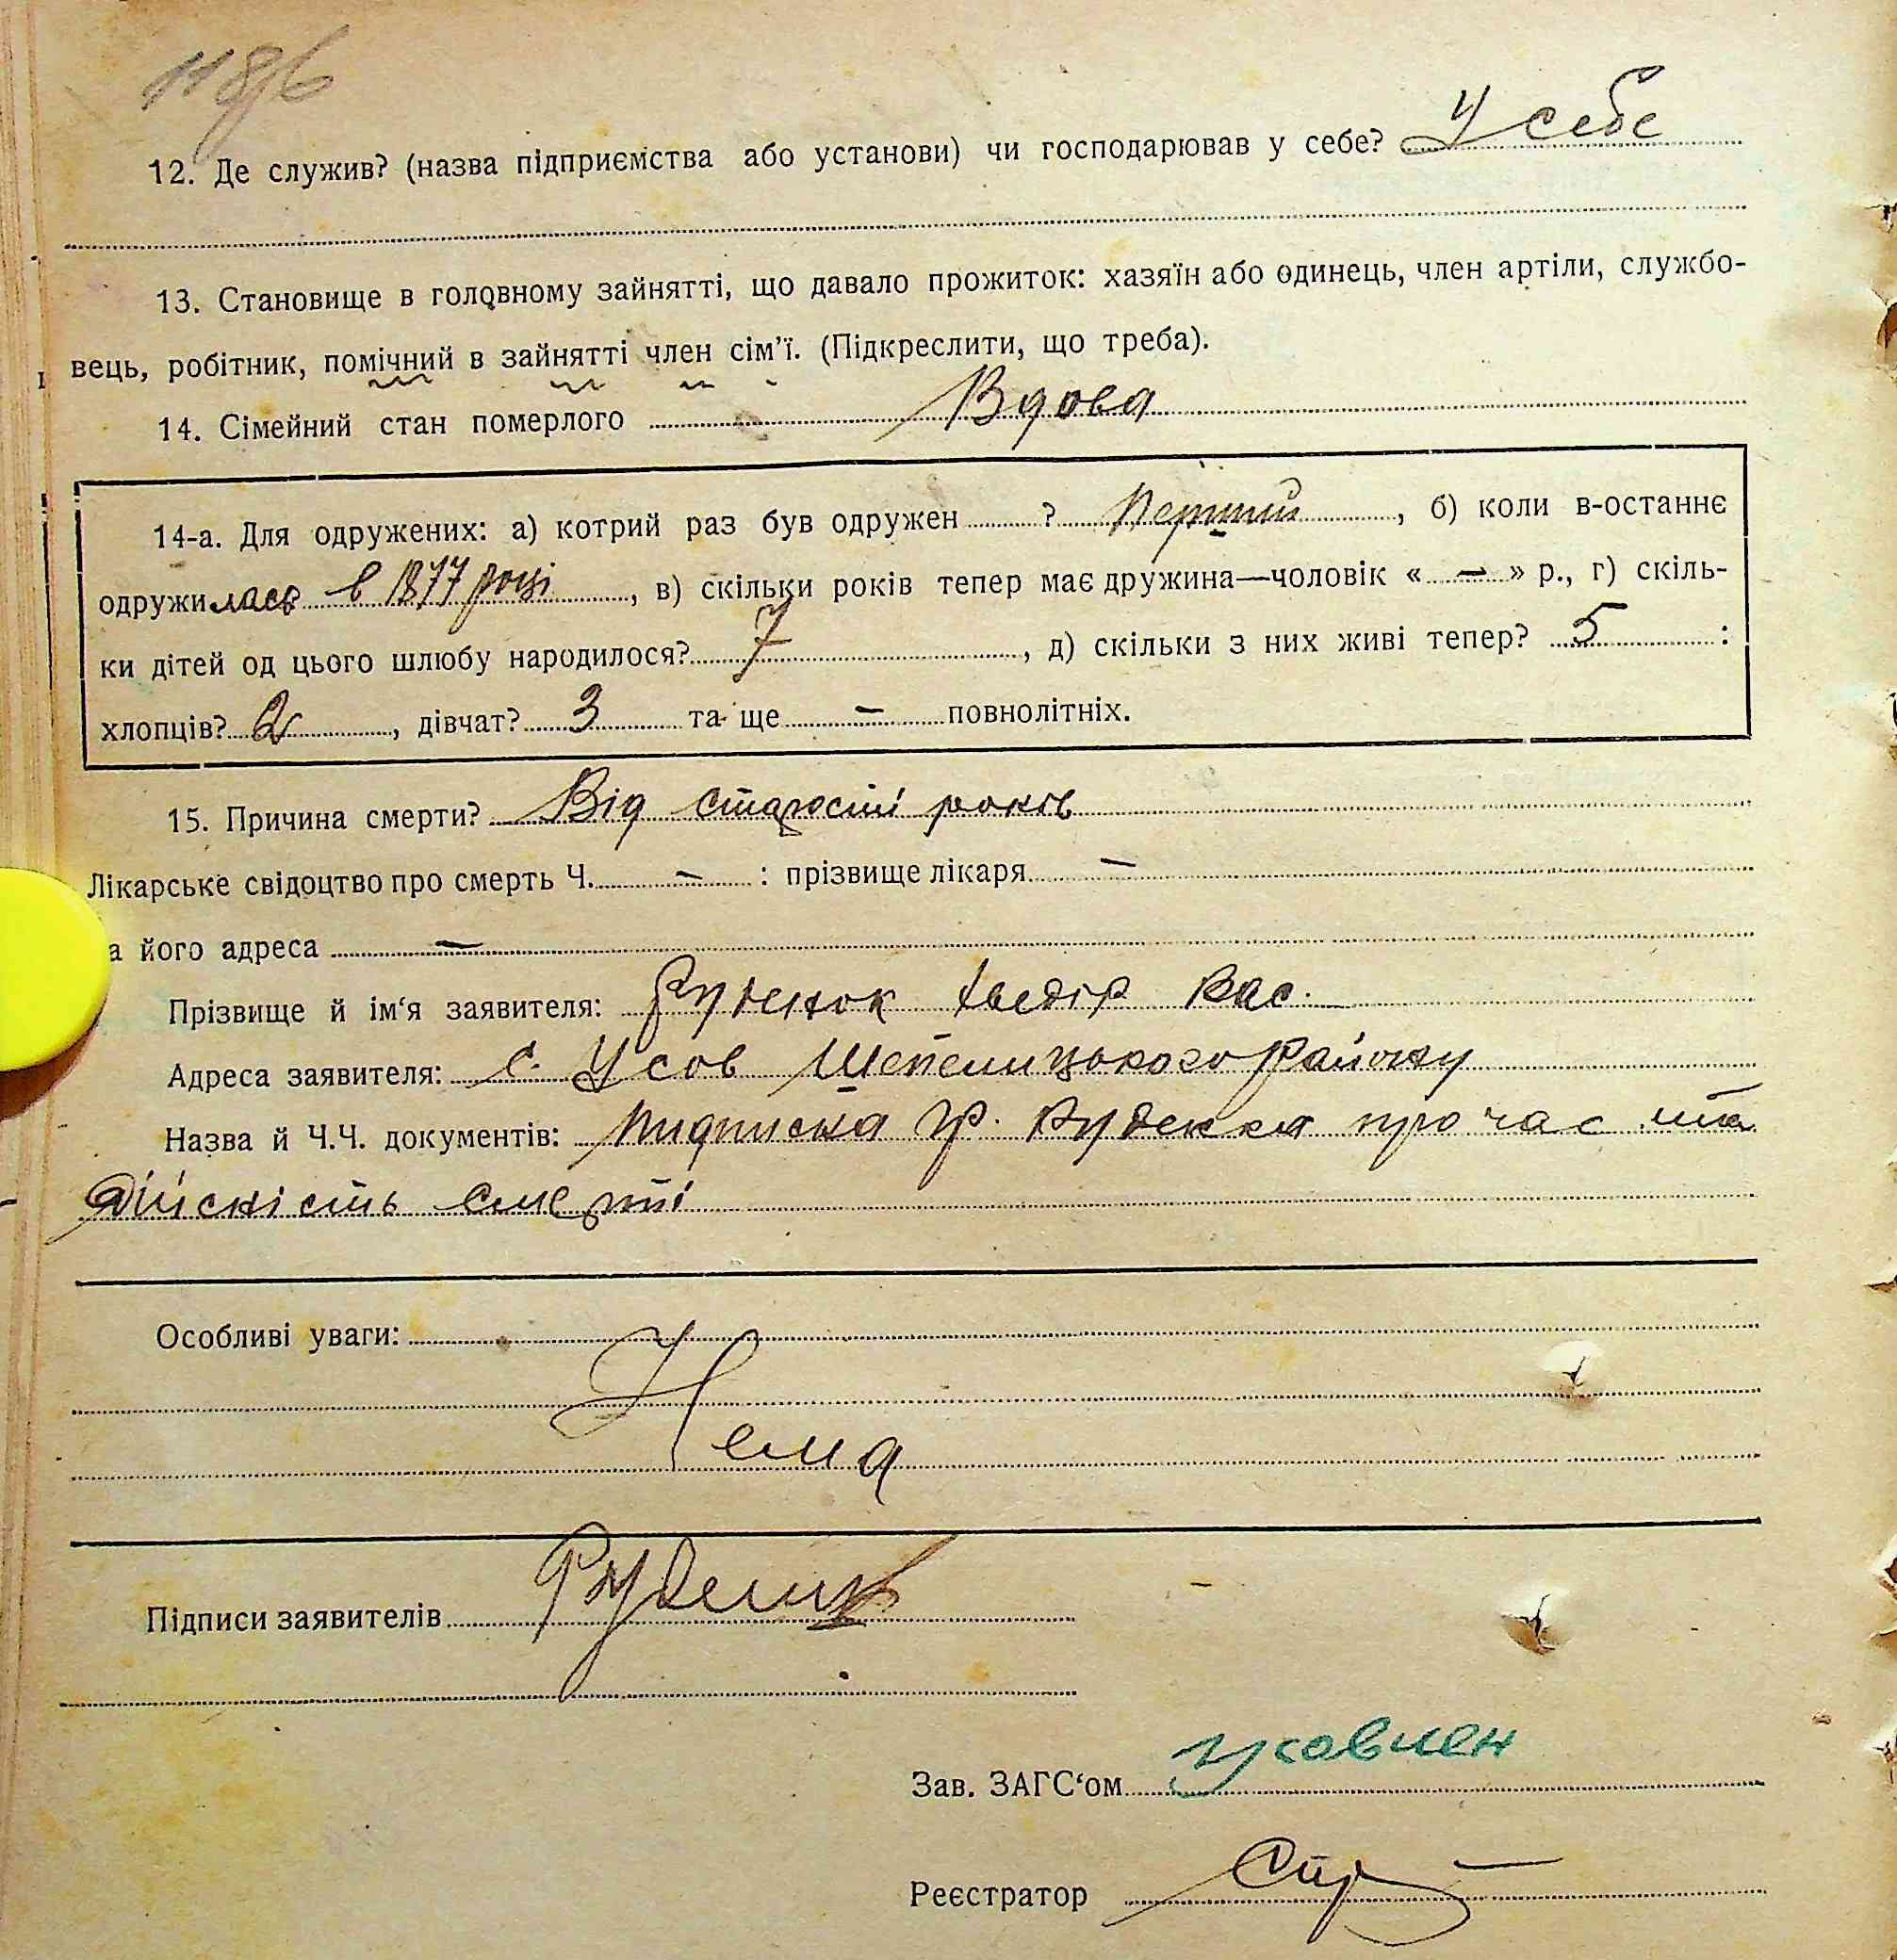 1186
12. Де служив? (назва підприємства або установи) чи господарював у себе? У себе
13. Становище в головному зайнятті, що давало прожиток: хазяїн або одинець, член артіли, службо-
вець, робітник, помічний в зайнятті член сім'ї. (Підкреслити, що треба).
14. Сімейний стан померлого Вдова
14-а. Для одружених: а) котрий раз був одружен ? Перший, б) коли в-останнє
одружилась в 1877 році, в) скільки років тепер має дружина—чоловік « — » р., г) скіль-
ки дітей од цього шлюбу народилося? 7, д) скільки з них живі тепер? 5 :
хлопців? 2, дівчат? 3 та ще — повнолітніх.
15. Причина смерти? Від старости років
Лікарське свідоцтво про смерть Ч. — : прізвище лікаря —
а його адреса —
Прізвище й ім'я заявителя: Руденок Хведір Вас.
Адреса заявителя: с. Усов Шепелицького району
Назва й Ч.Ч. документів: Пидписка гр. Руденка про час та
дійскість смерті
Особливі уваги:
Нема
Підписи заявителів Руденок
Зав. ЗАГС'ом
Реєстратор